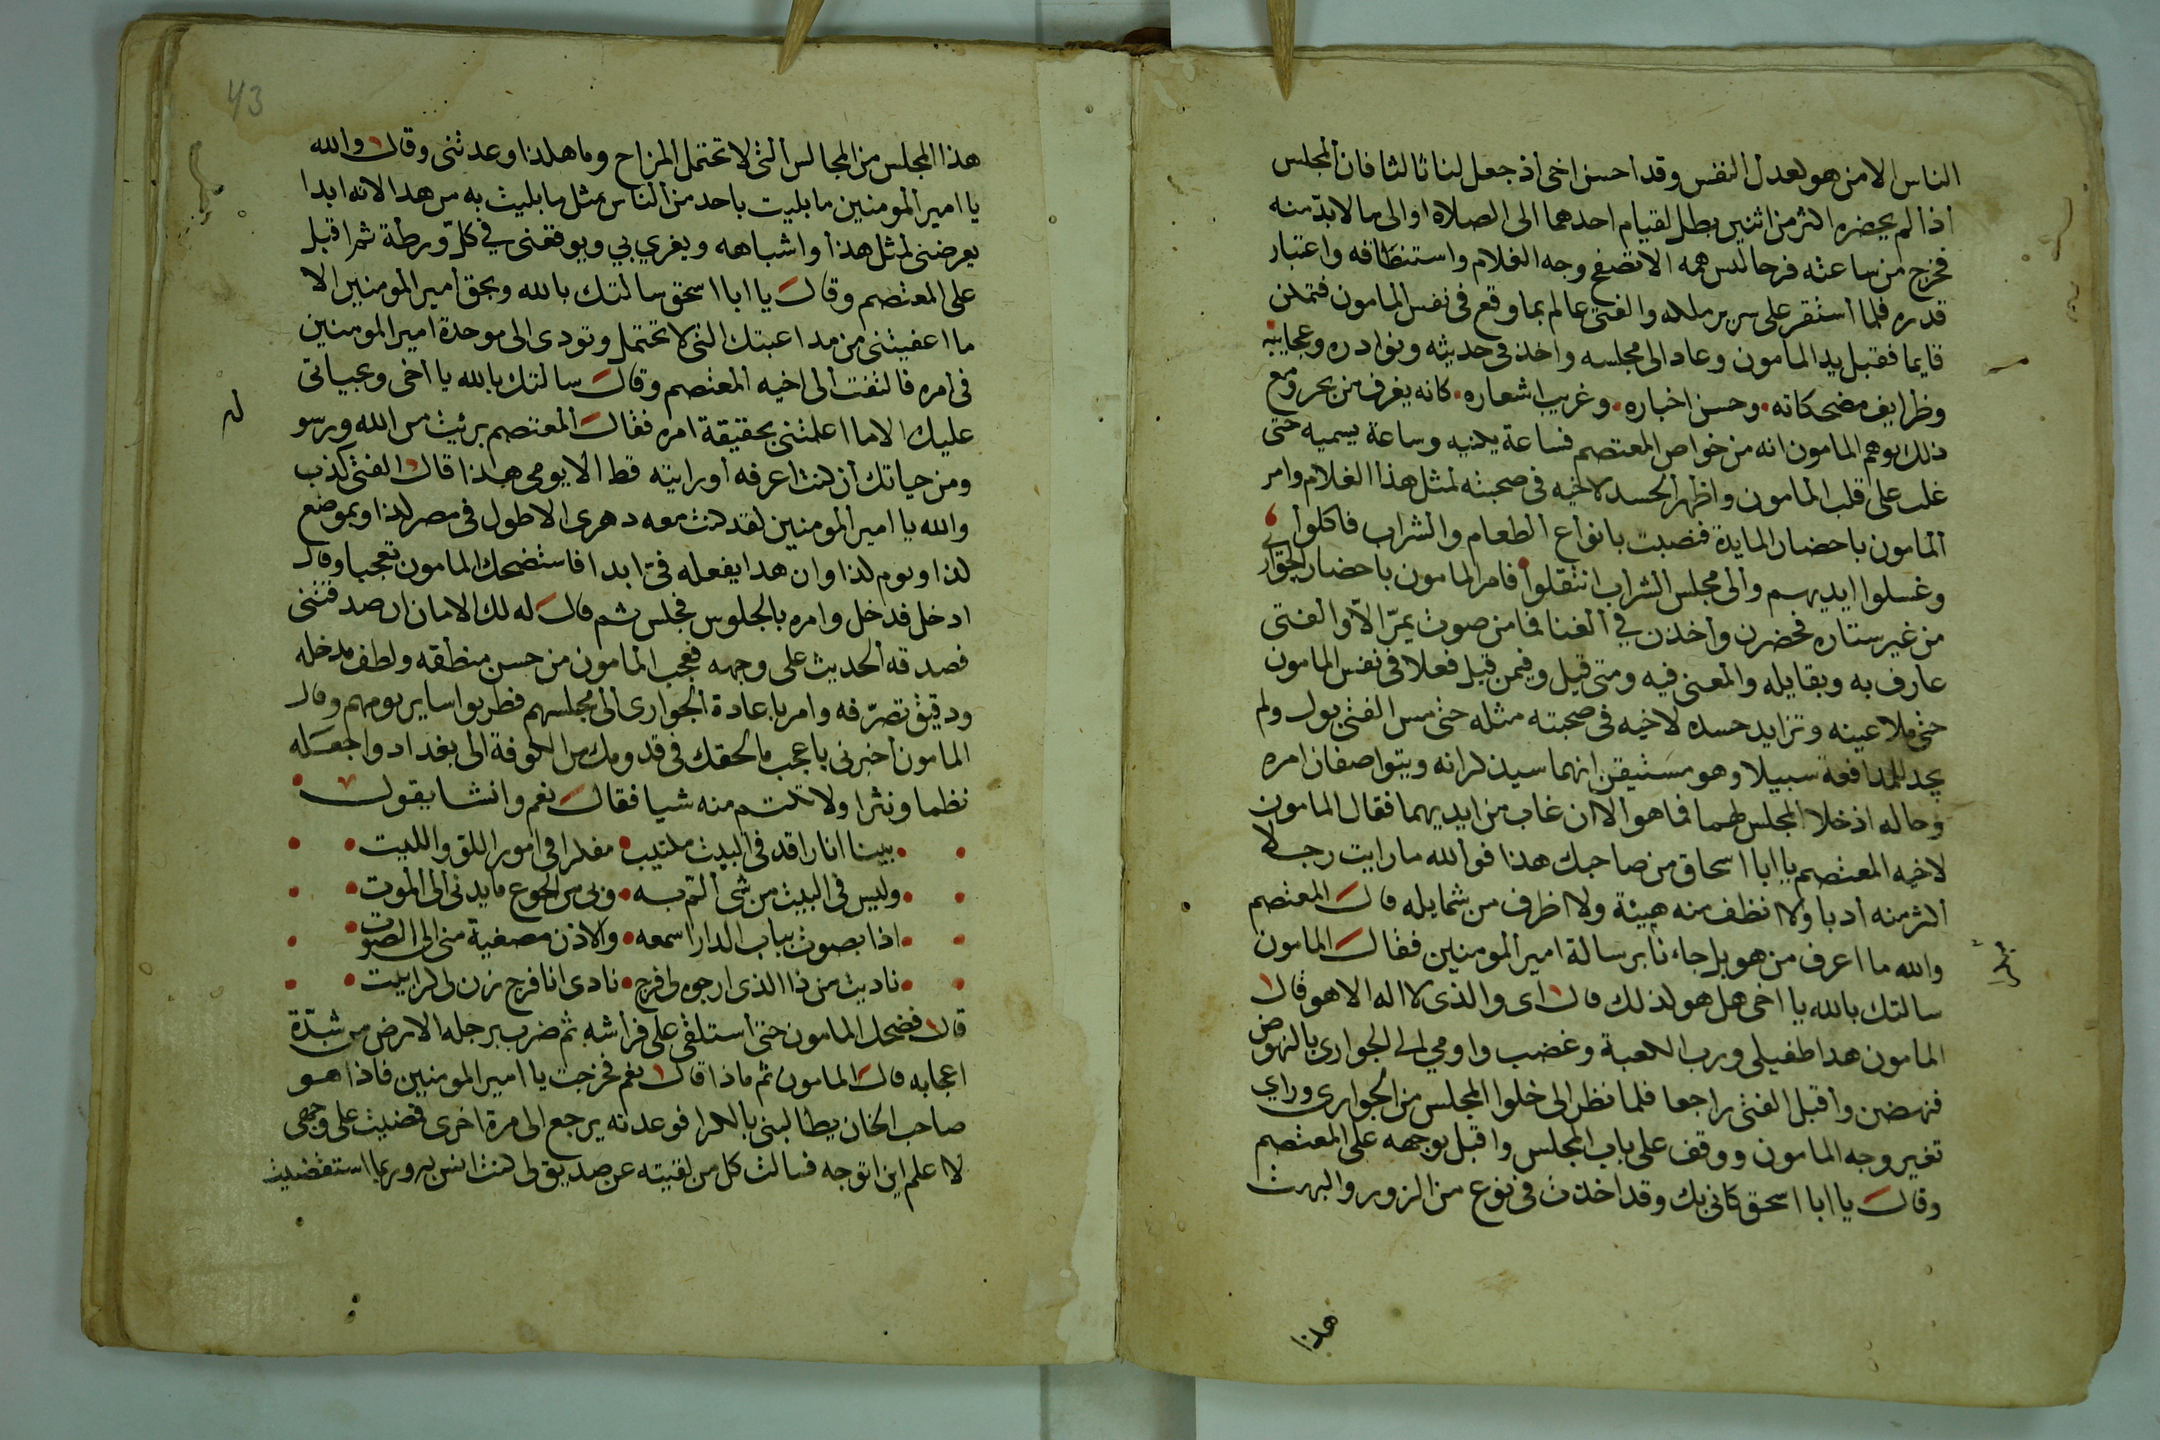 الناس الا من هو لعدل النفس وقد أحسن اخى أذ جعل لنا ثالثا فان المجلس
اذا لم يحضره اكثر من اثنين بطل لقيام احدهما الى الصلاه او الى ما لابدّ منه
فخرج من ساعته فرحا ليس همه الا تصفح وجه الغلام واستنطاقه واعتبار
قدره فلما أستقر على سرير ملكه والفتى عالم بما وقع فى نفس المامون فتمكن
قايما فقبل يد المامون وعاد الى مجلسه واخذ فى حديثه ونوادره وعجايبه
وظرايف مضحكاته وحسن اخباره وغريب اشعاره كانه يغرف من بحر ومع
ذلك يوهم المامون انه من خواص المعتصم فساعة يكنيه وساعة يسميه حتى
غلب على قلب المامون واظهر الحسد لاخيه فى صحبته لمثل هذا الغلام وامر
المامون باحضار المايدة فنصبت بانواع الطعام والشراب فاكلوا
وغسلوا ايديهم والى مجلس الشراب انتقلوا فامر المامون باحضار الجوار
من غير ستاره فحضرن وأخذن في ألغنا فما من صوت يمرّ الاّ والفتى
عارف به وبقايله والمعنى فيه ومتى قيل وفيمن قيل فعلا فى نفس المامون
حتى ملا عينه وتزايد حسده لاخيه فى صحبته مثله حتى مس الفتى بول ولم
يجد للمدافعة سبيلا وهو مستيقن انهما سيذكرانه ويتواصفان امره
وحاله اذ خلا المجلس لهما فما هو ألا ان غاب من ايديهما فقال المامون
لاخيه المعتصم يا ابا اسحاق من صاحبك هذا فو الله ما رايت رجلا
اكثر منه أدبا ولا انظف منه هيئة ولا اظرف من شمايله قال المعتصم
والله ما اعرف من هو بل جاءنا برسالة امير المومنين فقال المامون
سالتك بالله يا اخى هل هو كذلك قال اى والذى لا اله الا هو قال
المامون هدا طفيلى ورب الكعبة وغضب واومي الى الجوارى بالنهوض
فنهضن وأقبل الفتى راجعا فلما نظر الى خلوا المجلس من الجوارى وراي
تغير وجه المامون ووقف على باب المجلس واقبل بوجهه على المعتصم
وقال يا ابا اسحق كانى بك وقد اخذت فى نوع من الزور والبهت
هذا
هذا المجلس من المجالس التى لا تحتمل المزاح وما هكذا وعدتنى وقال والله
يا امير المومنين ما بليت باحد من الناس بمثل ما بليت به من هدا لانه ابدا
يعرضنى لمثل هذا واشباهه ويغري بي ويوقفنى في كلّ ورطة ثم اقبل
على المعتصم وقال يا ابا اسحق سالتك بالله وبحق أمير المومنين الا
ما اعفيتنى من مداعبتك التى لا تحتمل وتودى الى موجدة امير المومنين
فى امره فالتفت الى اخيه المعتصم وقال سالتك بالله يا أخى وبحياتى
عليك الا ما اعلمتنى بحقيقة امره فقال ألمعتصم برئيت من الله ورسو
ومن حياتك أن كنت اعرفه أو رايته قط الا يومى هذا قال الفتى كذب
والله يا امير المومنين لقد كنت معه دهرى الاطول فى مصر كذا وبموضع
كذا ويوم كذا وان هدا يفعله فىّ ابدا فاستضحك المامون تعجبا وقال
ادخل فدخل وامره بالجلوس فجلس ثم قال له لك الامان ان صدقتنى
فصدقه الحديث على وجهه فعجب المامون من حسن منطقه ولطف مدخله
ودقيق تصرّفه وامر باعادة الجوارى الى مجلسهم فطربوا ساير يومهم وقال
المامون أخبرنى باعجب ما لحقك فى قدومك من الكوفة الى بغداد واجعله
نظما ونثرا ولا تكتم منه شيا فقال نعم وانشا يقول
بينا انا راقد فى البيت مكتيب مفكرا فى امور اللق والليت
وليس فى البيت من شى ألمّ به وبى من الجوع ما يدنى الى الموت
اذا بصوت بباب الدار اسمعه والاذن مصغية منى الى الصوت
ناديت من ذا الذى ارجوه لى فرج نادى انا فرج زن لى كرا بيت
قال فضحك المامون حتى أستلقى على فراشه ثم ضرب برجله الارض من شدّة
اعجابه قال المامون ثم ماذا قال نعم فخرجت يا امير المومنين فاذا هو
صاحب الخان يطالبنى بالكرا فوعدته يرجع الى مرة اخرى فمضيت على وجهى
لا اعلم اين اتوجه فسالت كل من لقيته عن صديق لى كنت انس به وربما استقضيت